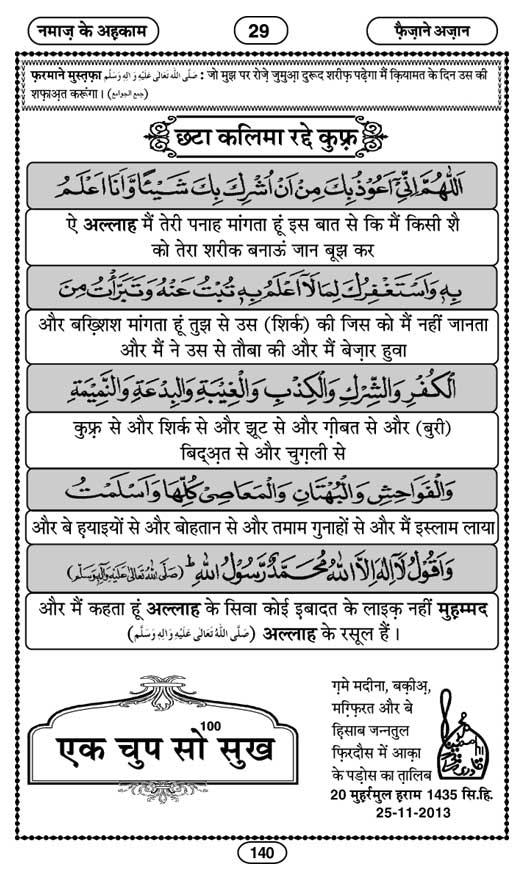 नमाज़ के अहकाम
29
फ़ैज़ाने अज़ान
फ़रमाने मुस्तफ़ा صَلَّى اللهُ تَعَالٰى عَلَيْهِ وَاٰلِهٖ وَسَلَّم : जो मुझ पर रोज़े जुमुआ दुरूद शरीफ़ पढ़ेगा मैं क़ियामत के दिन उस की
शफ़ाअ़त करूंगा । (جمع الجوامع)
छटा कलिमा रद्दे कुफ़्र
اَللّٰهُمَّ اِنِّىْٓ اَعُوْذُ بِكَ مِنْ اَنْ اُشْرِكَ بِكَ شَيْئًا وَّاَنَا اَعْلَمُ
ऐ अल्लाह मैं तेरी पनाह मांगता हूं इस बात से कि मैं किसी शै
को तेरा शरीक बनाऊं जान बूझ कर
بِهٖ وَاَسْتَغْفِرُكَ لِمَا لَآ اَعْلَمُ بِهٖ تُبْتُ عَنْهُ وَتَبَرَّأْتُ مِنَ
और बख़्शिश मांगता हूं तुझ से उस (शिर्क) की जिस को मैं नहीं जानता
और मैं ने उस से तौबा की और मैं बेज़ार हुवा
الْكُفْرِ وَالشِّرْكِ وَالْكِذْبِ وَالْغِيْبَةِ وَالْبِدْعَةِ وَالنَّمِيْمَةِ
कुफ़्र से और शिर्क से और झूट से और ग़ीबत से और (बुरी)
बिदअ़त से और चुग़ली से
وَالْفَوَاحِشِ وَالْبُهْتَانِ وَالْمَعَاصِىْ كُلِّهَا وَاَسْلَمْتُ
और बे ह़याइयों से और बोहतान से और तमाम गुनाहों से और मैं इस्लाम लाया
وَاَقُوْلُ لَآ اِلٰهَ اِلَّا اللهُ مُحَمَّدٌ رَّسُوْلُ اللهِ ط (صَلَّى اللهُ تَعَالٰى عَلَيْهِ وَاٰلِهٖ وَسَلَّم)
और मैं कहता हूं अल्लाह के सिवा कोई इ़बादत के लाइक़ नहीं मुह़म्मद
(صَلَّى اللهُ تَعَالٰى عَلَيْهِ وَاٰلِهٖ وَسَلَّم) अल्लाह के रसूल हैं ।
एक चुप सो 100 सुख
ग़मे मदीना, बक़ीअ़,
मग़्फ़िरत और बे
हिसाब जन्नतुल
फ़िरदौस में आक़ा
के पड़ोस का त़ालिब
20 मुह़र्रमुल ह़राम 1435 सि.हि.
25-11-2013
140